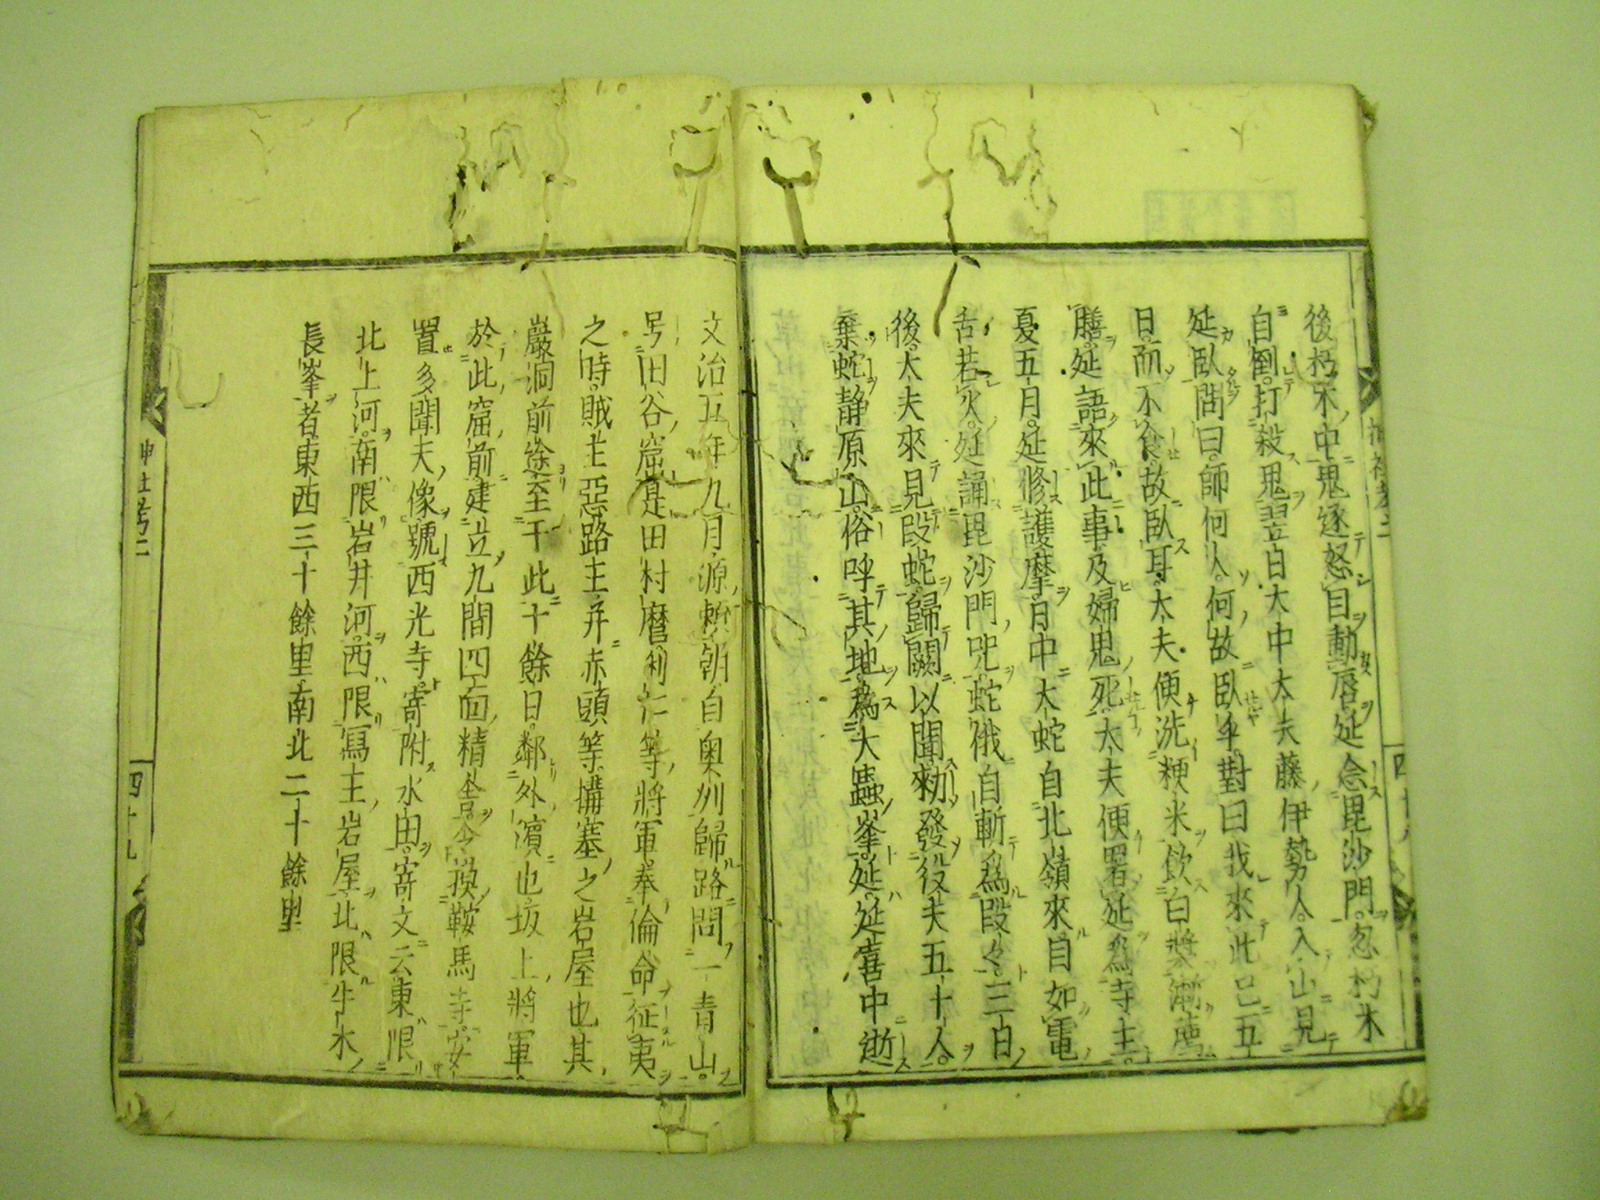 後朽木中鬼逐怒目動唇延念毘沙門忽朽木
自倒打殺鬼翌白大中大夫藤伊勢人入山見
延臥問曰師何人何故臥傘對曰我來此已五
日而不食故臥耳大夫便洗粳米飲白漿漸薦
膳延語來此事及婦鬼死大夫便署延為寺主
夏五月延修護摩日中大蛇自北嶺來目如電
舌若火延誦毘沙門咒蛇俄自斬為段々三日
後大夫來見段蛇歸闕以聞勑發役夫五十人
棄蛇静原山俗呼其地為大蟲峯延延喜中逝
文治五年九月源頼朝自奥州歸路問一青山
号田谷窟是田村麿利仁等將軍奉倫命征夷
之時賊主惡路王并赤頭等搆塞之岩屋也其
巖洞前途至于此十餘日鄰外濱也坂上將軍
於此窟前建立九間四面精舎令摸鞍馬寺安
置多聞天像號西光寺寄附水田寄文云東限
北上河南限岩井河西限寫王岩屋北限牛木
長峯者東西三十餘里南北二十餘里
神社考二
四十九